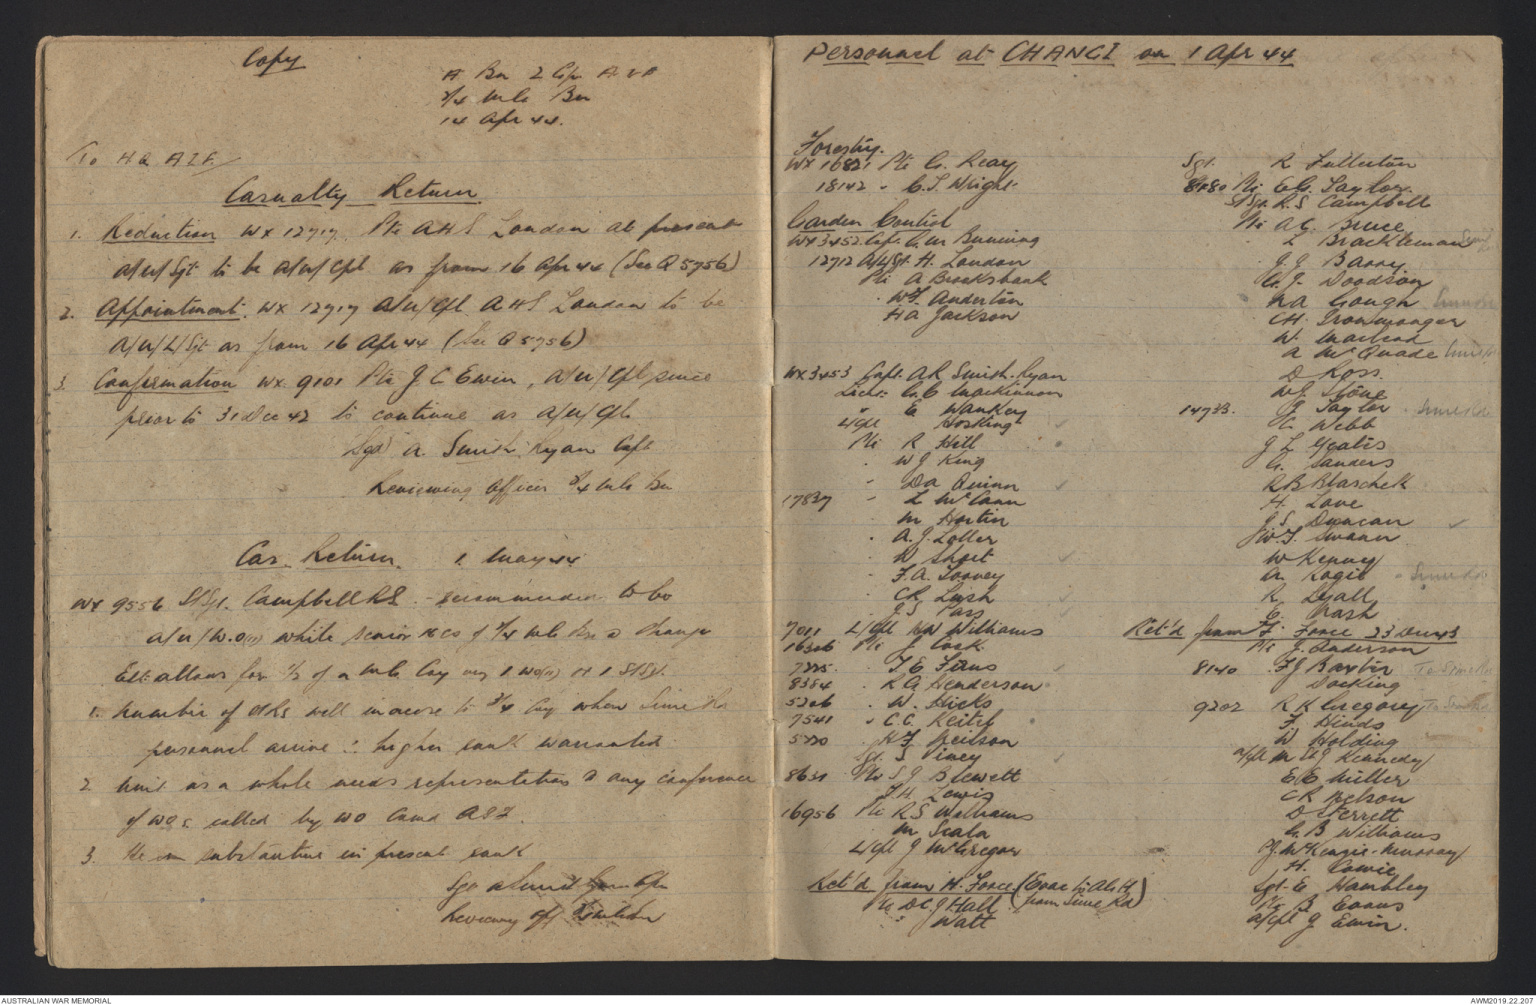 Copy
A Bn 2 Gp A.I.F
2/4 M.G. Bn
14 Apr 44.
To HQ AIF
Casualty Return
1. Reduction WX 12717 Pte AHS London at present
a/u/Sgt to be a/u/Cpl as from 16 Apr 44 (See Q 5756)
2. Appointment. WX 12717 a/u/Cpl AHS London to be
a/u/L/Sgt as from 16 Apr 44 (See Q 5756)
3. Confirmation WX 9101 Pte J C Ewin, a/u/Cpl since
prior to 31 Dec 42 to continue as a/u/Cpl
Sgd A. Smith-Ryan Capt
Reviewing Officer 2/4 M.G. Bn
Cas. Return. 1 May 44
WX 9556 S/Sgt. Campbell RS - recommended to be
a/u/W.O(II) while senior NCO of 2/4 MG Bn @ Changi
Est allows for 1/2 of a MG Coy 1 WO(II) + 1 S/Sgt.
1. Number of ORs will increase to 3/4 Coy when Sime Rd
personnel arrive ∴ higher rank warranted
2 Unit as a whole needs representation @ any conference
of WOs called by WO Comd AIF.
3. He is substantive in present rank
Sgd A Smith-Ryan Capt
Reviewing Off
Personnel at CHANGI on 1 Apr 44
Forestry.
WX 16821 Pte G. Reay
18142 " C.T. Wright
Garden Control
WX 3452 Capt. C.W. Bunning
12717 A/L/Sgt. H. London
Pte A Brooksbank
" W.T. Anderton
HA Jackson
WX 3453 Capt. AR Smith-Ryan
Lieut. C.C Mackinnon
" E Wankey
L/Cpl Hosking
Pte R Hill
" W J King
" DA Quinn
17837 " L McCann
" M Hortin
" A. J. Lotter
" W Short
" F.A. Toovey
" CR Lush
" J.S Pass
7011 L/Cpl WW Williams
16306 Pte J Cook
7225 " T E Fams
8384 " R G Henderson
5206 " W. Hicks
7541 " C.C. Keitel
5220 " H.F. Neilson
Sgt. S Viney
8631 Pte S J Blewett
J H Lewis
16956 Pte R S Williams
" M Scala
L/Cpl J McGregor
Ret'd from H. Force (Evac to Als H from Sime Rd)
Pte D C J Hall
" Watt
Sgt. R Fullerton
8480 Pte E G. Taylor.
S/Sgt R.S Campbell
Pte A C. Bruce
L Brackleman
J. J Barry
G. J. Doodson
MA Gough
CH. Ironmonger
W. Macleod
A McQuade
D Ross.
W J Stone
14733. J Taylor - Sime Rd
N. Webb
J L Yeates
G. Sanders
R B Blaschek
H. Love
J. S. Duncan
W.T. Swann
W Kenney
A. Hagie - Sime Rd
R Lyall
C Nash
Ret'd from F. Force 23 Dec 43
Pte J. Anderson
8140 FJ Baxter To Sime Rd
Docking
9202 R K Gregory To Sime Rd
F. Hinds
W Holding
A/Cpl M E J Kennedy
E.E Miller
CR Nelson
D Sterrett
G. B Williams
J. McKenzie-Murray
H. Cowie
Sgt. E Hambley
Pte B Evans
A/Cpl J Ewin.
AUSTRALIAN WAR MEMORIAL
AWM2019.22.207